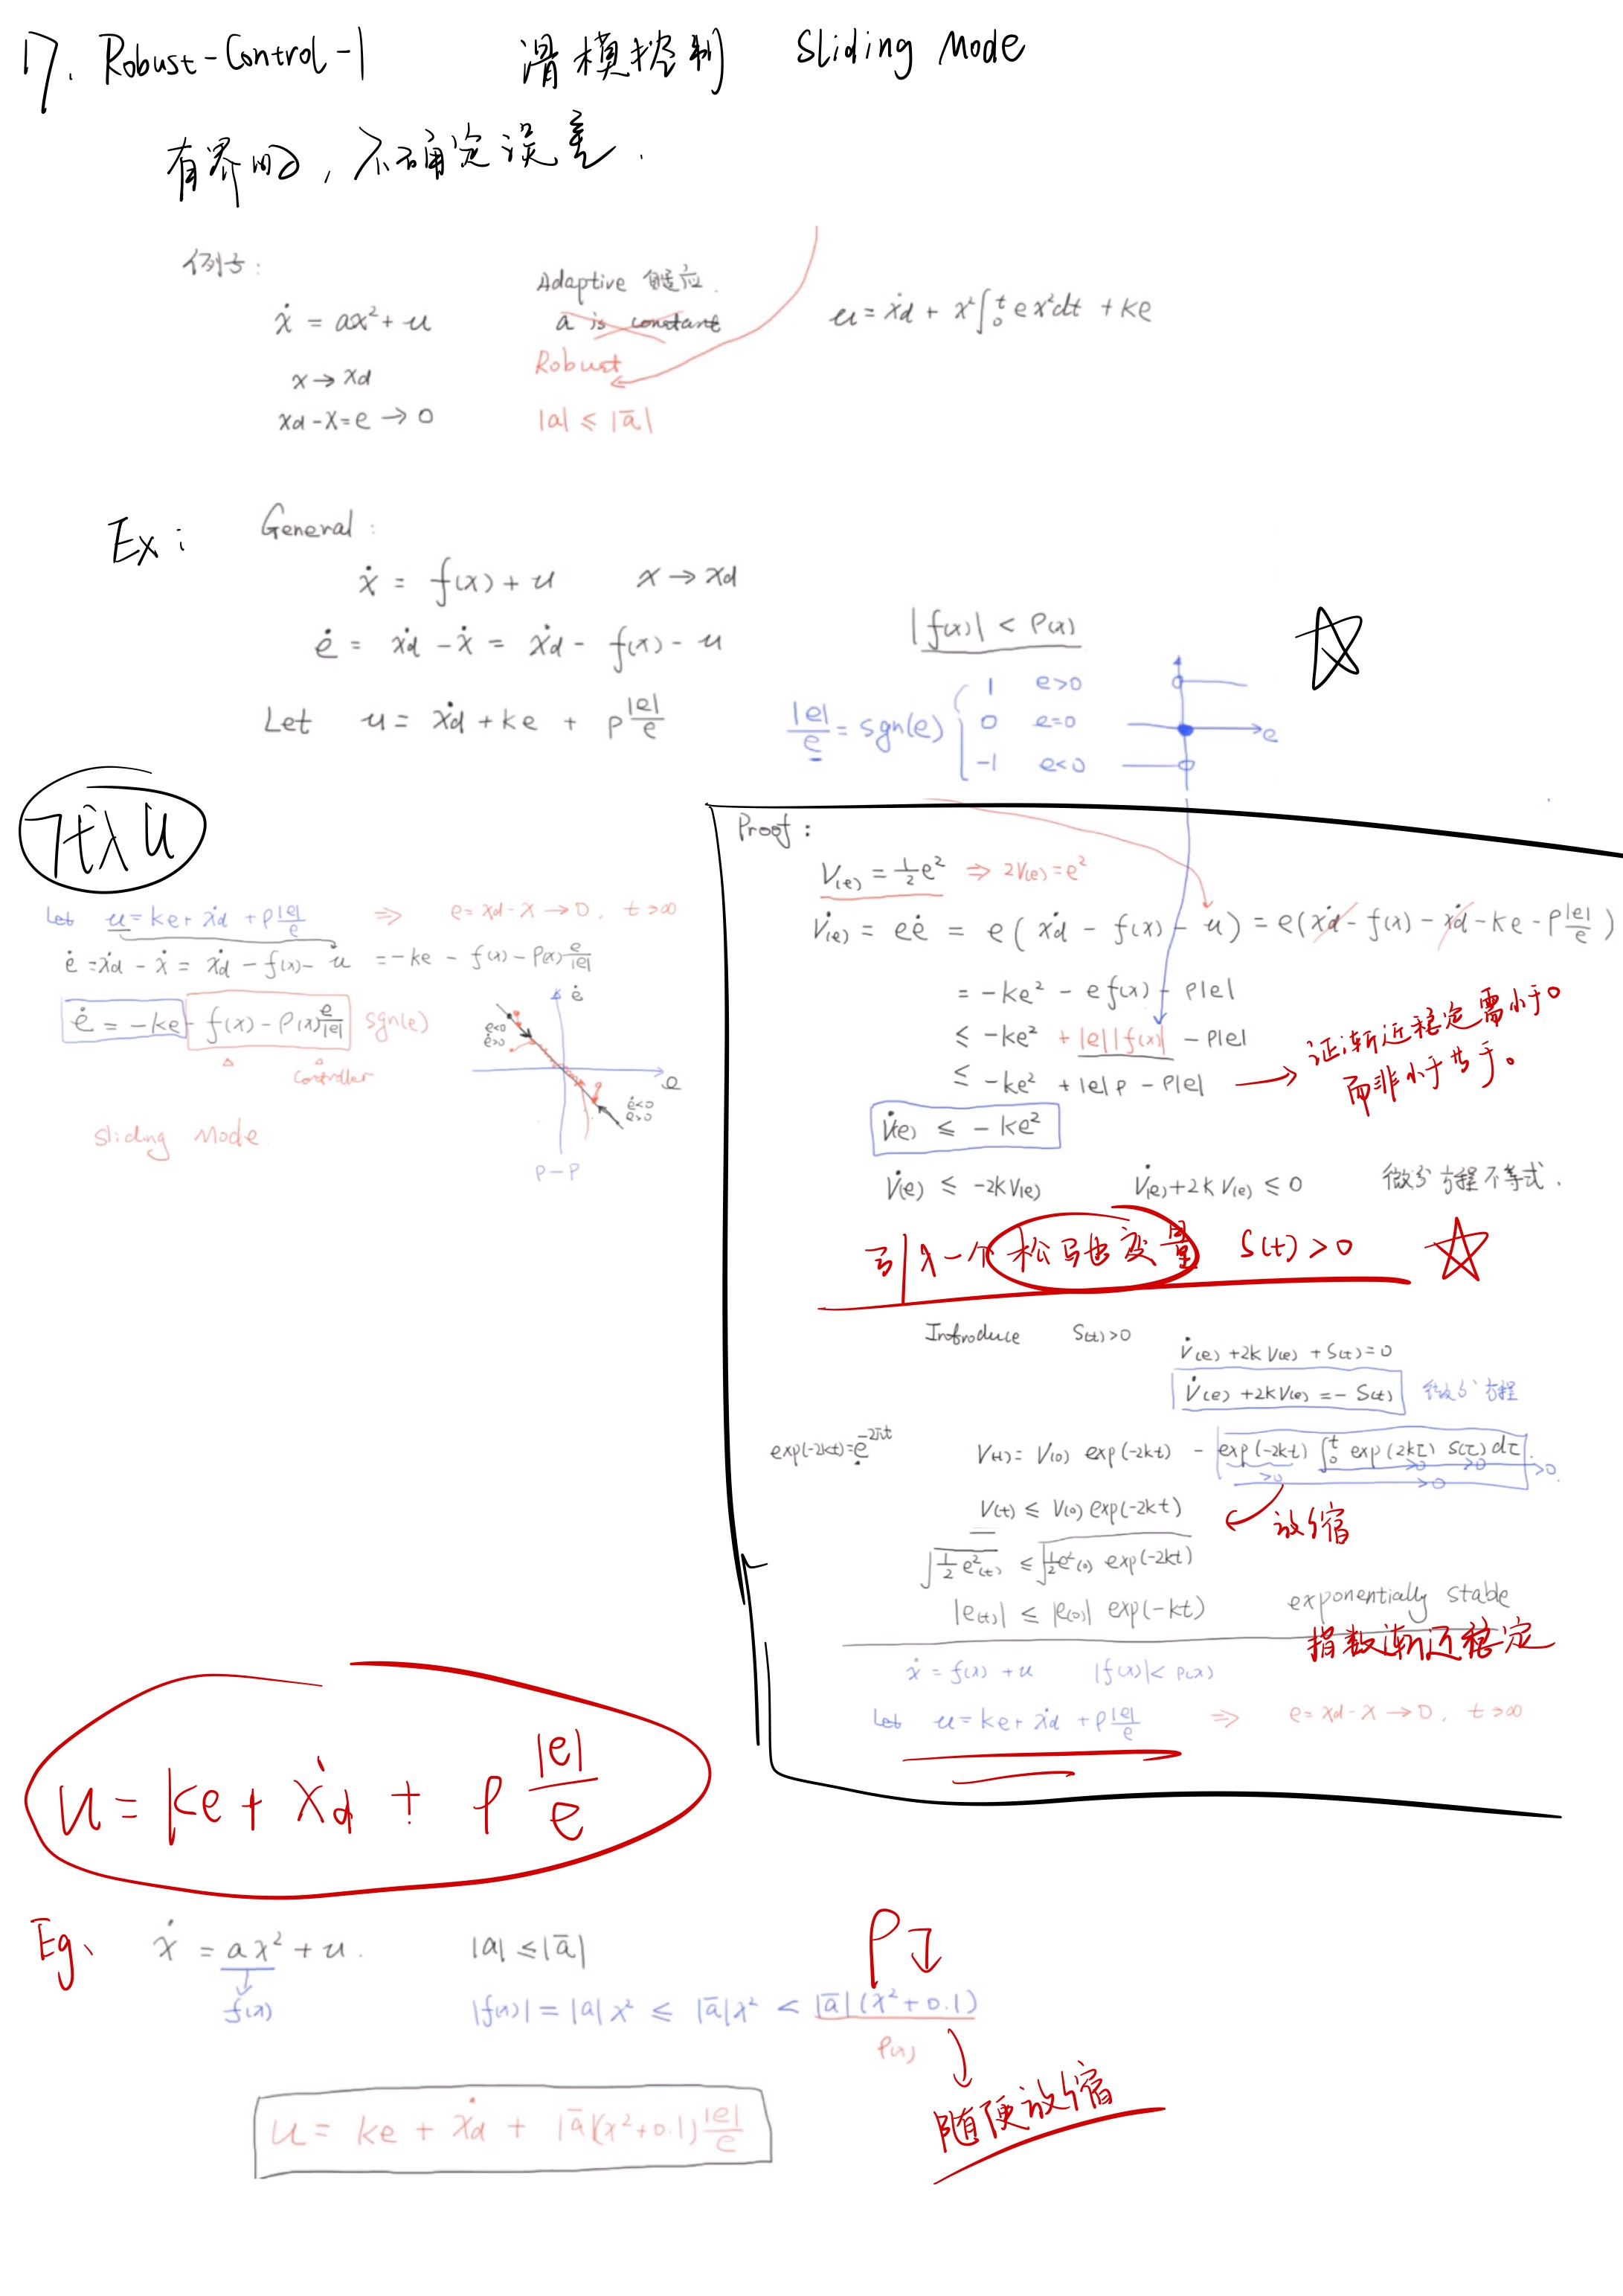 17. Robust-Control-1 滑模控制 Sliding Mode
有界的, 不确定误差.
例子:
Adaptive 自适应.
ẋ = ax² + u
a is constant
u = ẋd + x²∫₀ᵗ e x² dt + ke
Robust
x → xd
xd - x = e → 0
|a| ≤ |ā|
Ex: General:
ẋ = f(x) + u x → xd
ė = ẋd - ẋ = ẋd - f(x) - u
|f(x)| < ρ(x)
Let u = ẋd + ke + ρ|e|/e
|e|/e = sgn(e) { 1 e>0
0 e=0
-1 e<0
e
代入 u
Let u = ke + ẋd + ρ|e|/e ⇒ e = xd - x → 0, t→∞
ė = ẋd - ẋ = ẋd - f(x) - u = -ke - f(x) - ρ(x) e/|e|
ė = -ke - f(x) - ρ(x) e/|e| sgn(e)
Controller
Sliding Mode.
ė
e
ė<0
e>0
ė<0
e>0
P-P
Proof:
V(e) = ½e² ⇒ 2V(e) = e²
V̇(e) = eė = e(ẋd - f(x) - u) = e(ẋd - f(x) - ẋd - ke - ρ|e|/e)
= -ke² - ef(x) - ρ|e|
≤ -ke² + |e||f(x)| - ρ|e|
≤ -ke² + |e|ρ - ρ|e| →
证渐近稳定需小于0
而非小于等于。
V̇(e) ≤ -ke²
V̇(e) ≤ -2kV(e) V̇(e) + 2kV(e) ≤ 0 微分方程不等式.
引入一个松弛变量 S(t) > 0
Introduce S(t) > 0
V̇(e) + 2kV(e) + S(t) = 0
V̇(e) + 2kV(e) = -S(t) 微分方程
exp(-2kt) = e^-2kt
V(t) = V(0) exp(-2kt) - exp(-2kt) ∫₀ᵗ exp(2kτ) S(τ) dτ
>0 >0 >0 >0 >0.
V(t) ≤ V(0) exp(-2kt)
放缩
√(½e²(t)) ≤ √(½e²(0) exp(-2kt))
|e(t)| ≤ |e(0)| exp(-kt) exponentially stable
指数渐近稳定
ẋ = f(x) + u |f(x)| < ρ(x)
Let u = ke + ẋd + ρ|e|/e ⇒ e = xd - x → 0, t→∞
u = ke + ẋd + ρ|e|/e
Eg. ẋ = ax² + u. |a| ≤ |ā|
ρ↓
f(x)
|f(x)| = |a|x² ≤ |ā|x² < |ā|(x² + 0.1)
ρ(x)
随便放缩
u = ke + ẋd + |ā|(x² + 0.1)|e|/e